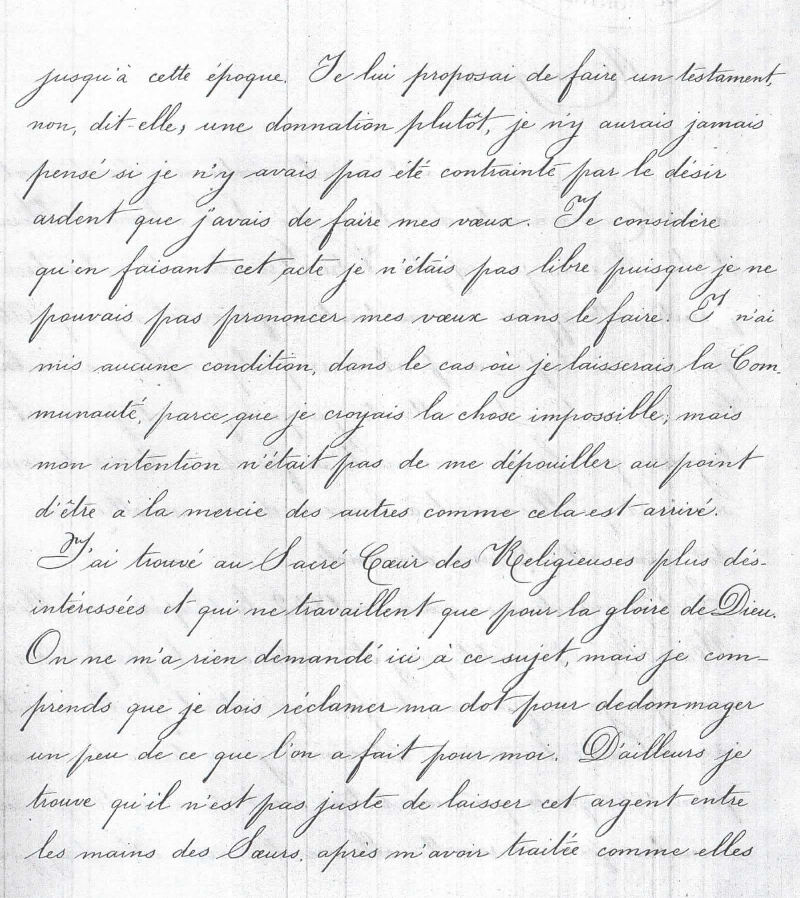 jusqu'à cette époque. Je lui proposai de faire un testament,
non, dit-elle, une donnation plutôt, je n'y aurais jamais
pensé si je n'y avais pas été contrainte par le désir
ardent que j'avais de faire mes vœux. Je considère
qu'en faisant cet acte je n'étais pas libre puisque je ne
pouvais pas prononcer mes vœux sans le faire. J n'ai
mis aucune condition, dans le cas où je laisserais la Com-
munauté, parce que je croyais la chose impossible; mais
mon intention n'était pas de me dépouiller au point
d'être à la mercie des autres comme cela est arrivé.
J'ai trouvé au Sacré Cœur des Religieuses plus dés-
intéressées et qui ne travaillent que pour la gloire de Dieu.
On ne m'a rien demandé ici à ce sujet, mais je com-
prends que je dois réclamer ma dot pour dedommager
un peu de ce que l'on a fait pour moi. D'ailleurs je
trouve qu'il n'est pas juste de laisser cet argent entre
les mains des Sœurs, après m'avoir traitée comme elles